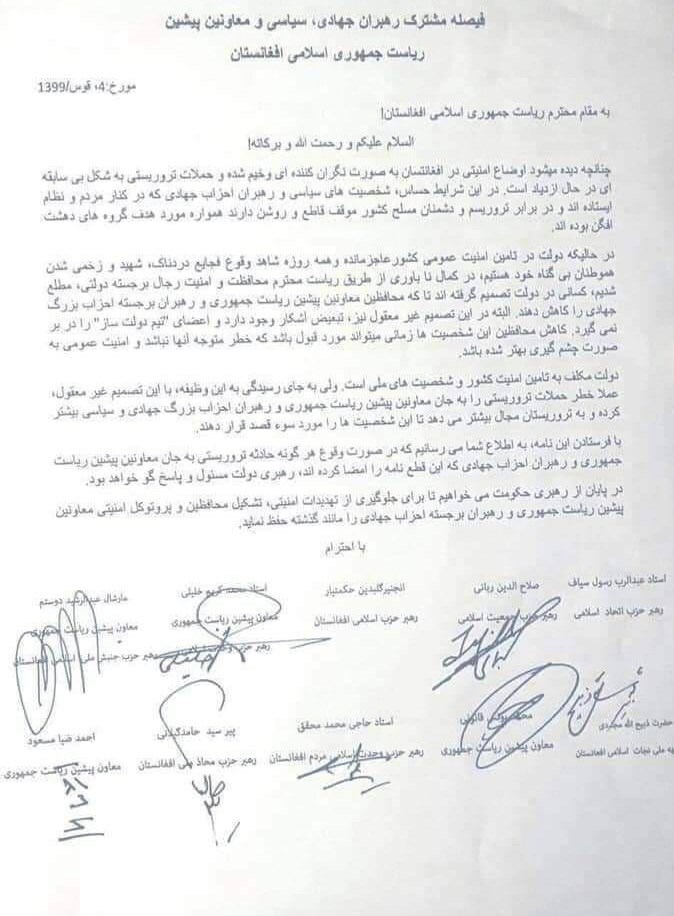 فیصله مشترک رهبران جهادی، سیاسی و معاونین پیشین
ریاست جمهوری اسلامی افغانستان
مورخ:4، قوس/1399
به مقام محترم ریاست جمهوری اسلامی افغانستان!
السلام علیکم و رحمت الله و برکاته!
چنانچه دیده میشود اوضاع امنیتی در افغانستان به صورت نگران کننده ای وخیم شده و حملات تروریستی به شکل بی سابقه
ای در حال ازدیاد است. در این شرایط حساس، شخصیت های سیاسی و رهبران احزاب جهادی که در کنار مردم و نظام
ایستاده اند و در برابر تروریسم و دشمنان مسلح کشور موقف قاطع و روشن دارند همواره مورد هدف گروه های دهشت
افگن بوده اند.
در حالیکه دولت در تامین امنیت عمومی کشورعاجزمانده وهمه روزه شاهد وقوع فجایع دردناک، شهید و زخمی شدن
هموطنان بی گناه خود هستیم، در کمال نا باوری از طریق ریاست محترم محافظت و امنیت رجال برجسته دولتی، مطلع
شدیم، کسانی در دولت تصمیم گرفته اند تا که محافظین معاونین پیشین ریاست جمهوری و رهبران برجسته احزاب بزرگ
جهادی را کاهش دهند. البته در این تصمیم غیر معقول نیز، تبعیض آشکار وجود دارد و اعضای "تیم دولت ساز" را در بر
نمی گیرد. کاهش محافظین این شخصیت ها زمانی میتواند مورد قبول باشد که خطر متوجه آنها نباشد و امنیت عمومی به
صورت چشم گیری بهتر شده باشد.
دولت مکلف به تامین امنیت کشور و شخصیت های ملی است. ولی به جای رسیدگی به این وظیفه، با این تصمیم غیر معقول،
عملا خطر حملات تروریستی را به جان معاونین پیشین ریاست جمهوری و رهبران احزاب بزرگ جهادی و سیاسی بیشتر
کرده و به تروریستان مجال بیشتر می دهد تا این شخصیت ها را مورد سوء قصد قرار دهند.
با فرستادن این نامه، به اطلاع شما می رسانیم که در صورت وقوع هر گونه حادثه تروریستی به جان معاونین پیشین ریاست
جمهوری و رهبران احزاب جهادی که این قطع نامه را امضا کرده اند، رهبری دولت مسئول و پاسخ گو خواهد بود.
در پایان از رهبری حکومت می خواهیم تا برای جلوگیری از تهدیدات امنیتی، تشکیل محافظین و پروتوکل امنیتی معاونین
پیشین ریاست جمهوری و رهبران برجسته احزاب جهادی را مانند گذشته حفظ نماید.
با احترام
استاد عبدالرب رسول سیاف صلاح الدین ربانی انجنیرگلبدین حکمتیار استاد محمد کریم خلیلی مارشال عبدالرشید دوستم
رهبر حزب اتحاد اسلامی رهبر حزب جمعیت اسلامی رهبر حزب اسلامی افغانستان معاون پیشین ریاست جمهوری معاون پیشین ریاست جمهوری
رهبر حزب وحدت اسلامی رهبر حزب جنبش ملی اسلامی افغانستان
حضرت ذبیح الله مجددی محمد یونس قانونی استاد حاجی محمد محقق پیر سید حامدگیلانی احمد ضیا مسعود
ملی نجات اسلامی افغانستان معاون پیشین ریاست جمهوری رهبر حزب وحدت اسلامی مردم افغانستان رهبر حزب محاذ ملی افغانستان معاون پیشین ریاست جمهوری